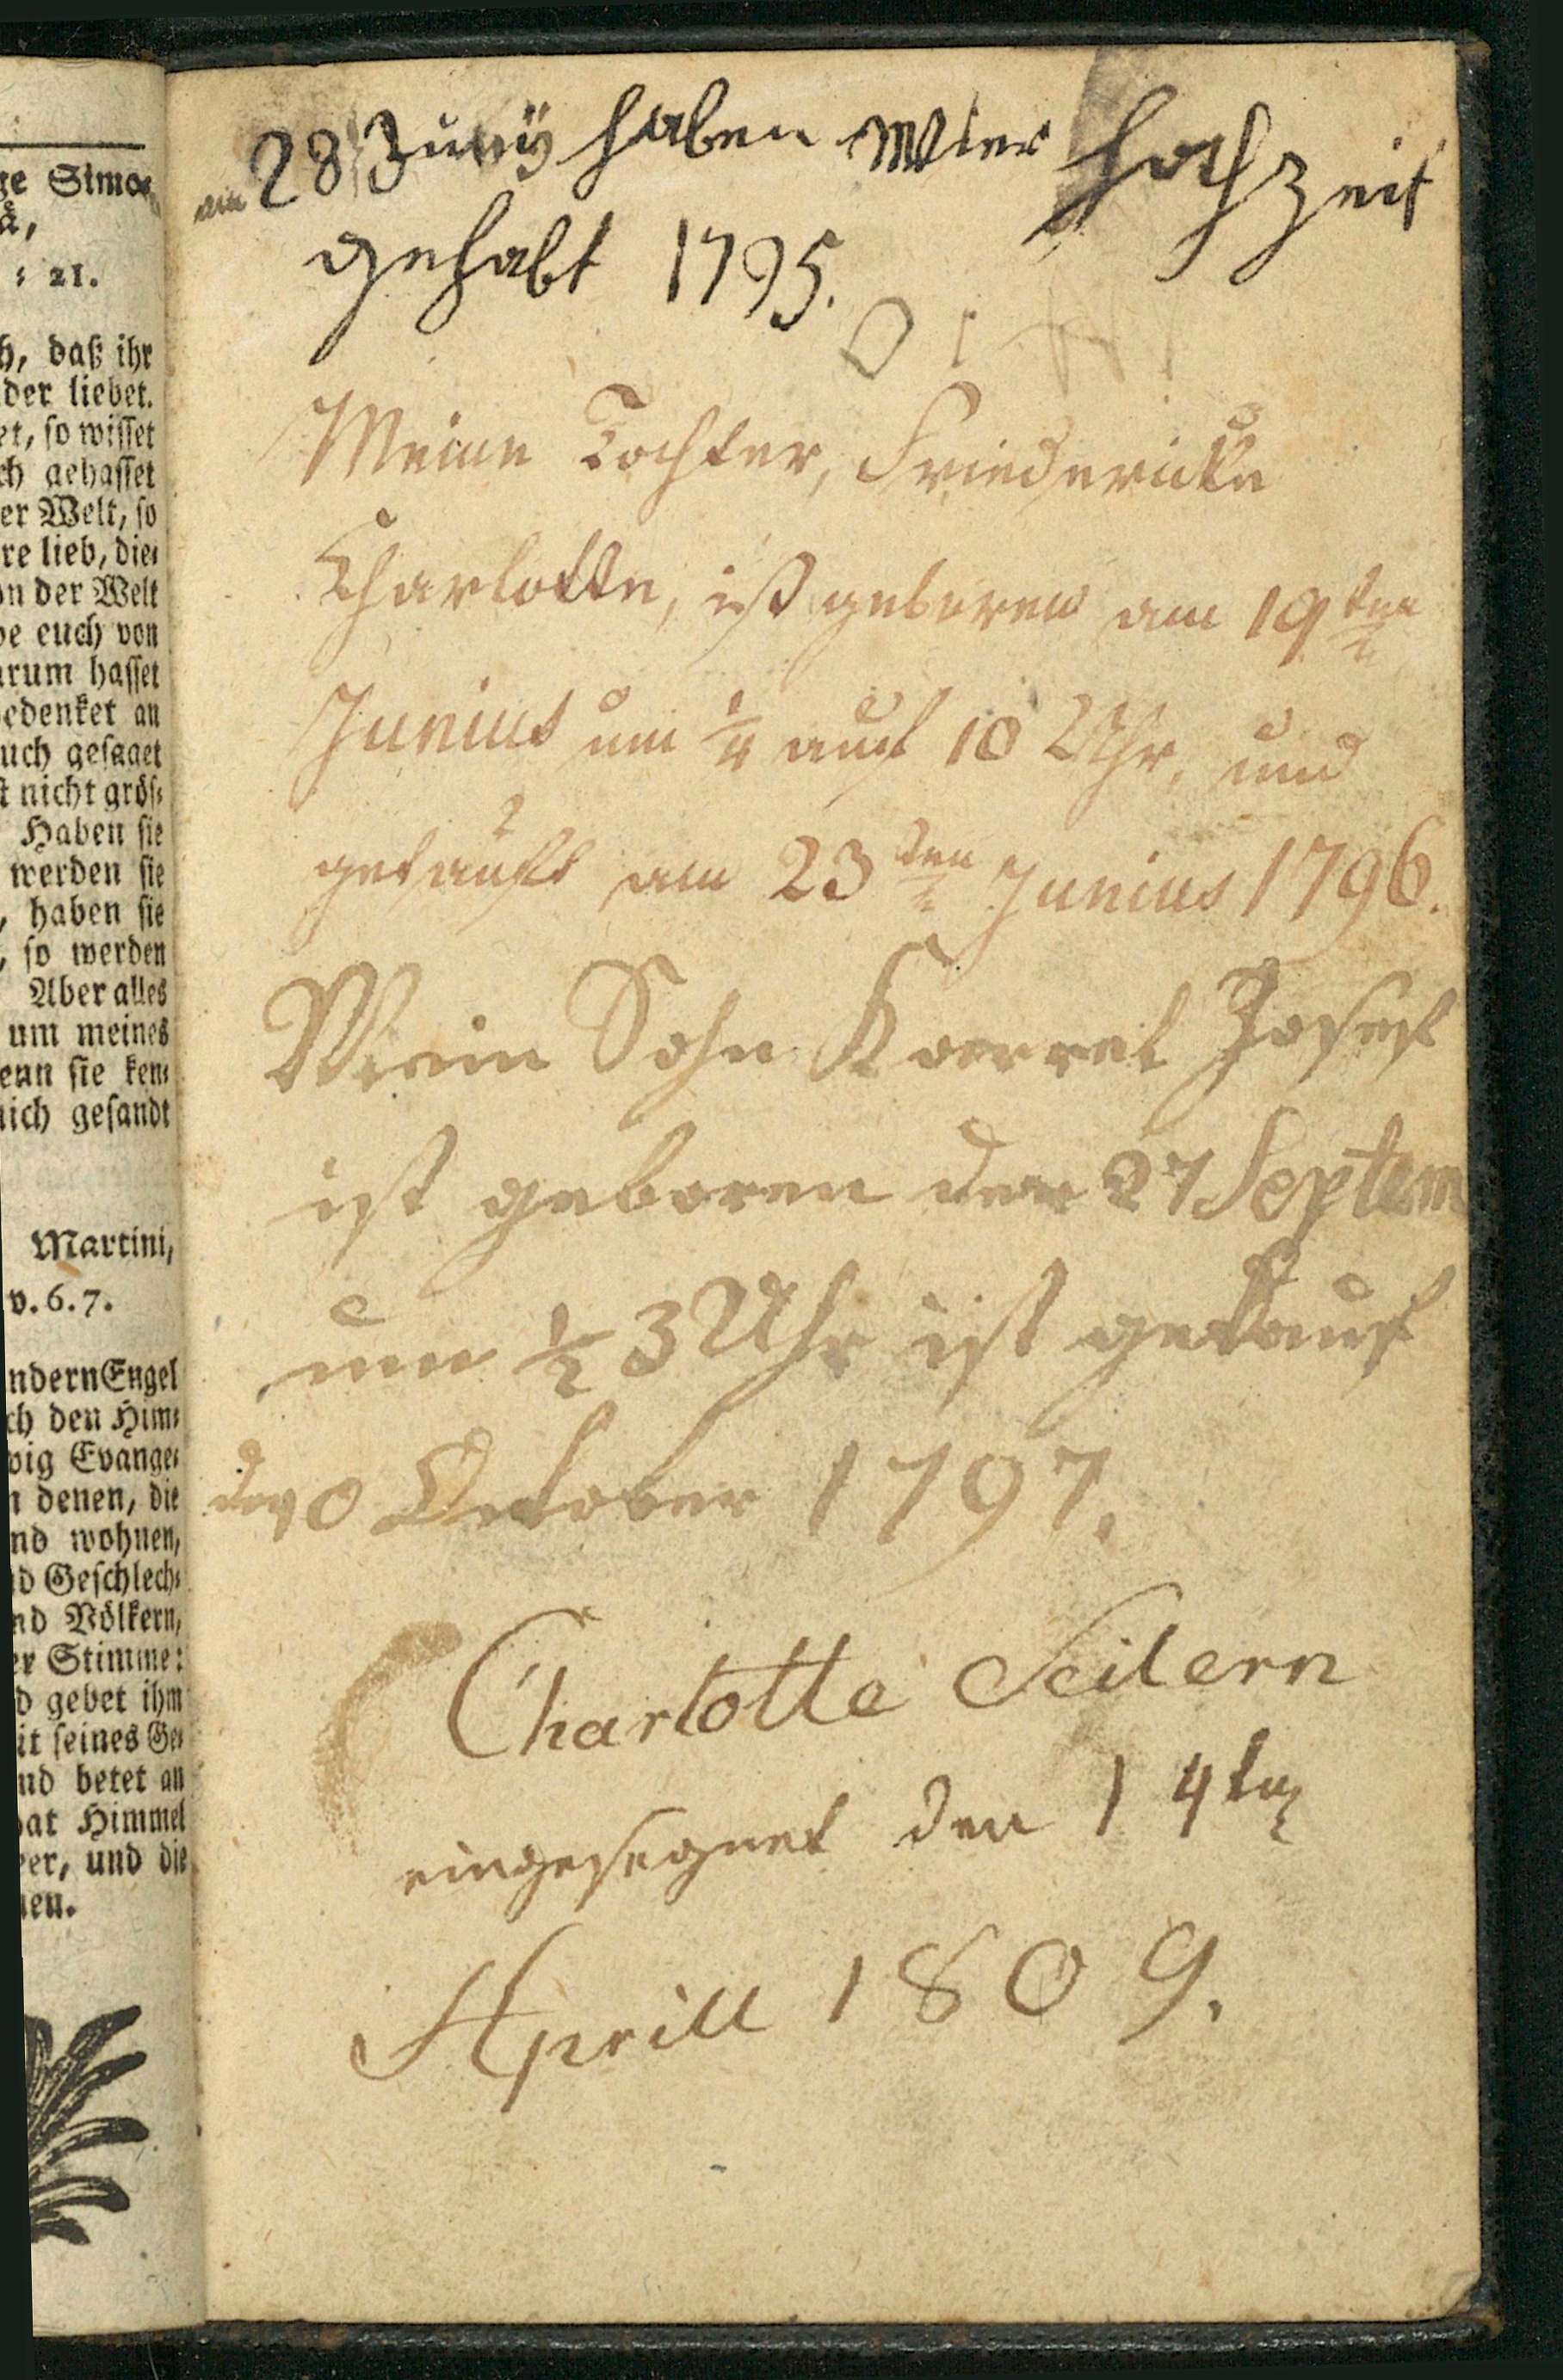 ge Simo⸗
å,
⸗ 21.
h, daß ihr
der liebet.
et, so wisset
ch gehasset
er Welt, so
re lieb, die⸗
on der Welt
be euch von
arum hasset
gedenket an
uch gesaget
st nicht grös⸗
Haben sie
werden sie
, haben sie
, so werden
Aber alles
um meines
enn sie ken⸗
mich gesandt
Martini,
v. 6. 7.
ndern Engel
ch den Him⸗
wig Evange⸗
n denen, die
nd wohnen,
nd Geschlech⸗
nd Völkern,
er Stimme:
d gebet ihm
it seines Ge⸗
nd betet an
hat Himmel
eer, und die
nen.
am 28 Juny haben Wier Hochzeit
gehabt 1795.
Meine Tochter, Friedericke
Charlotte, ist geboren am 19ten
Junius um 1/4 auf 10 Uhr, und
getauft am 23ten Junius 1796.
Mein Sohn Josef
ist geboren den 27 Septem
um 1/2 3 Uhr ist getauf
October 1797.
Charlotte Seilern
eingesegnet den 14ten
Aprill 1809.